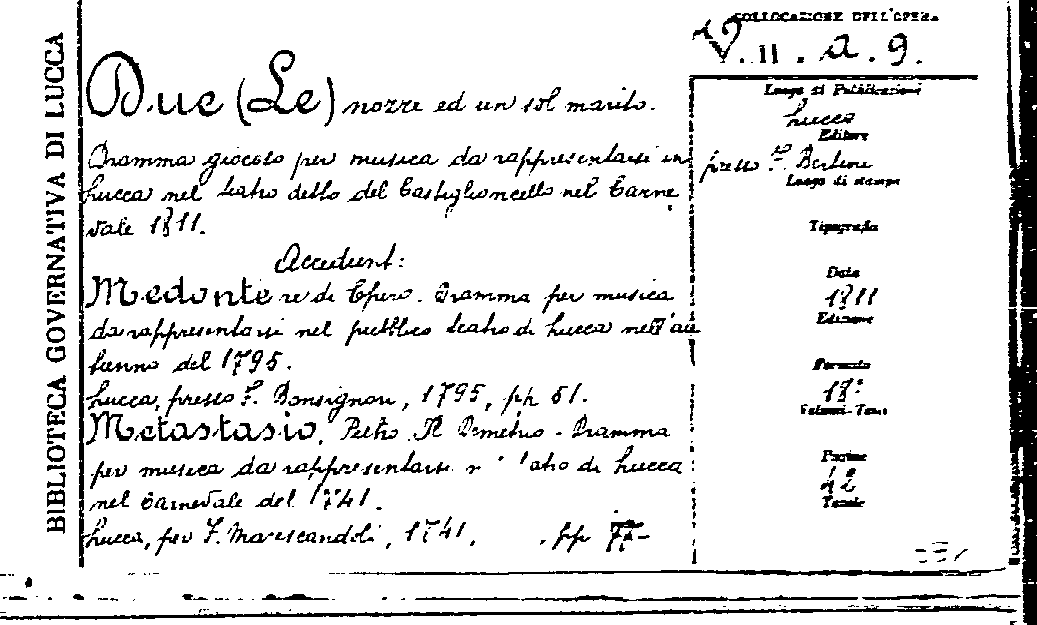 BIBLIOTECA GOVERNATIVA DI LUCCA
COLLOCAZIONE DELL'OPERA
V. II. a. 9.
Due (Le) nozze ed un sol marito.
Dramma giocoso per musica da rappresentarsi in
Lucca nel teatro detto del Castiglioncello nel Carne
vale 1811.
Accedunt:
Medonte re di Epiro. Dramma per musica
da rappresentarsi nel pubblico teatro di Lucca nell'au
tunno del 1795.
Lucca, presso F. Bonsignori, 1795, pp 51.
Metastasio, Pietro. Il Demetrio - Dramma
per musica da rappresentarsi teatro di Lucca
nel Carnevale del 1741.
Lucca, per F. Marescandoli, 1741, pp 77-
Luogo di Pubblicazione
Lucca
Editore
presso F. Bertini
Luogo di stampa
Tipografia
Data
1811
Edizione
Formato
18°
Volumi-Tomi
Pagine
42
Tavole